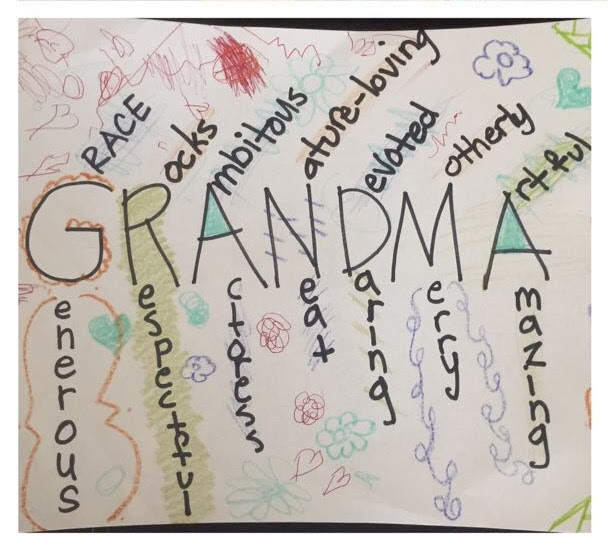 RACE
ocks
mbitous
ature-loving
evoted
otherly
rtful
GRANDMA
enerous
espectful
ctress
eat
aring
erry
mazing